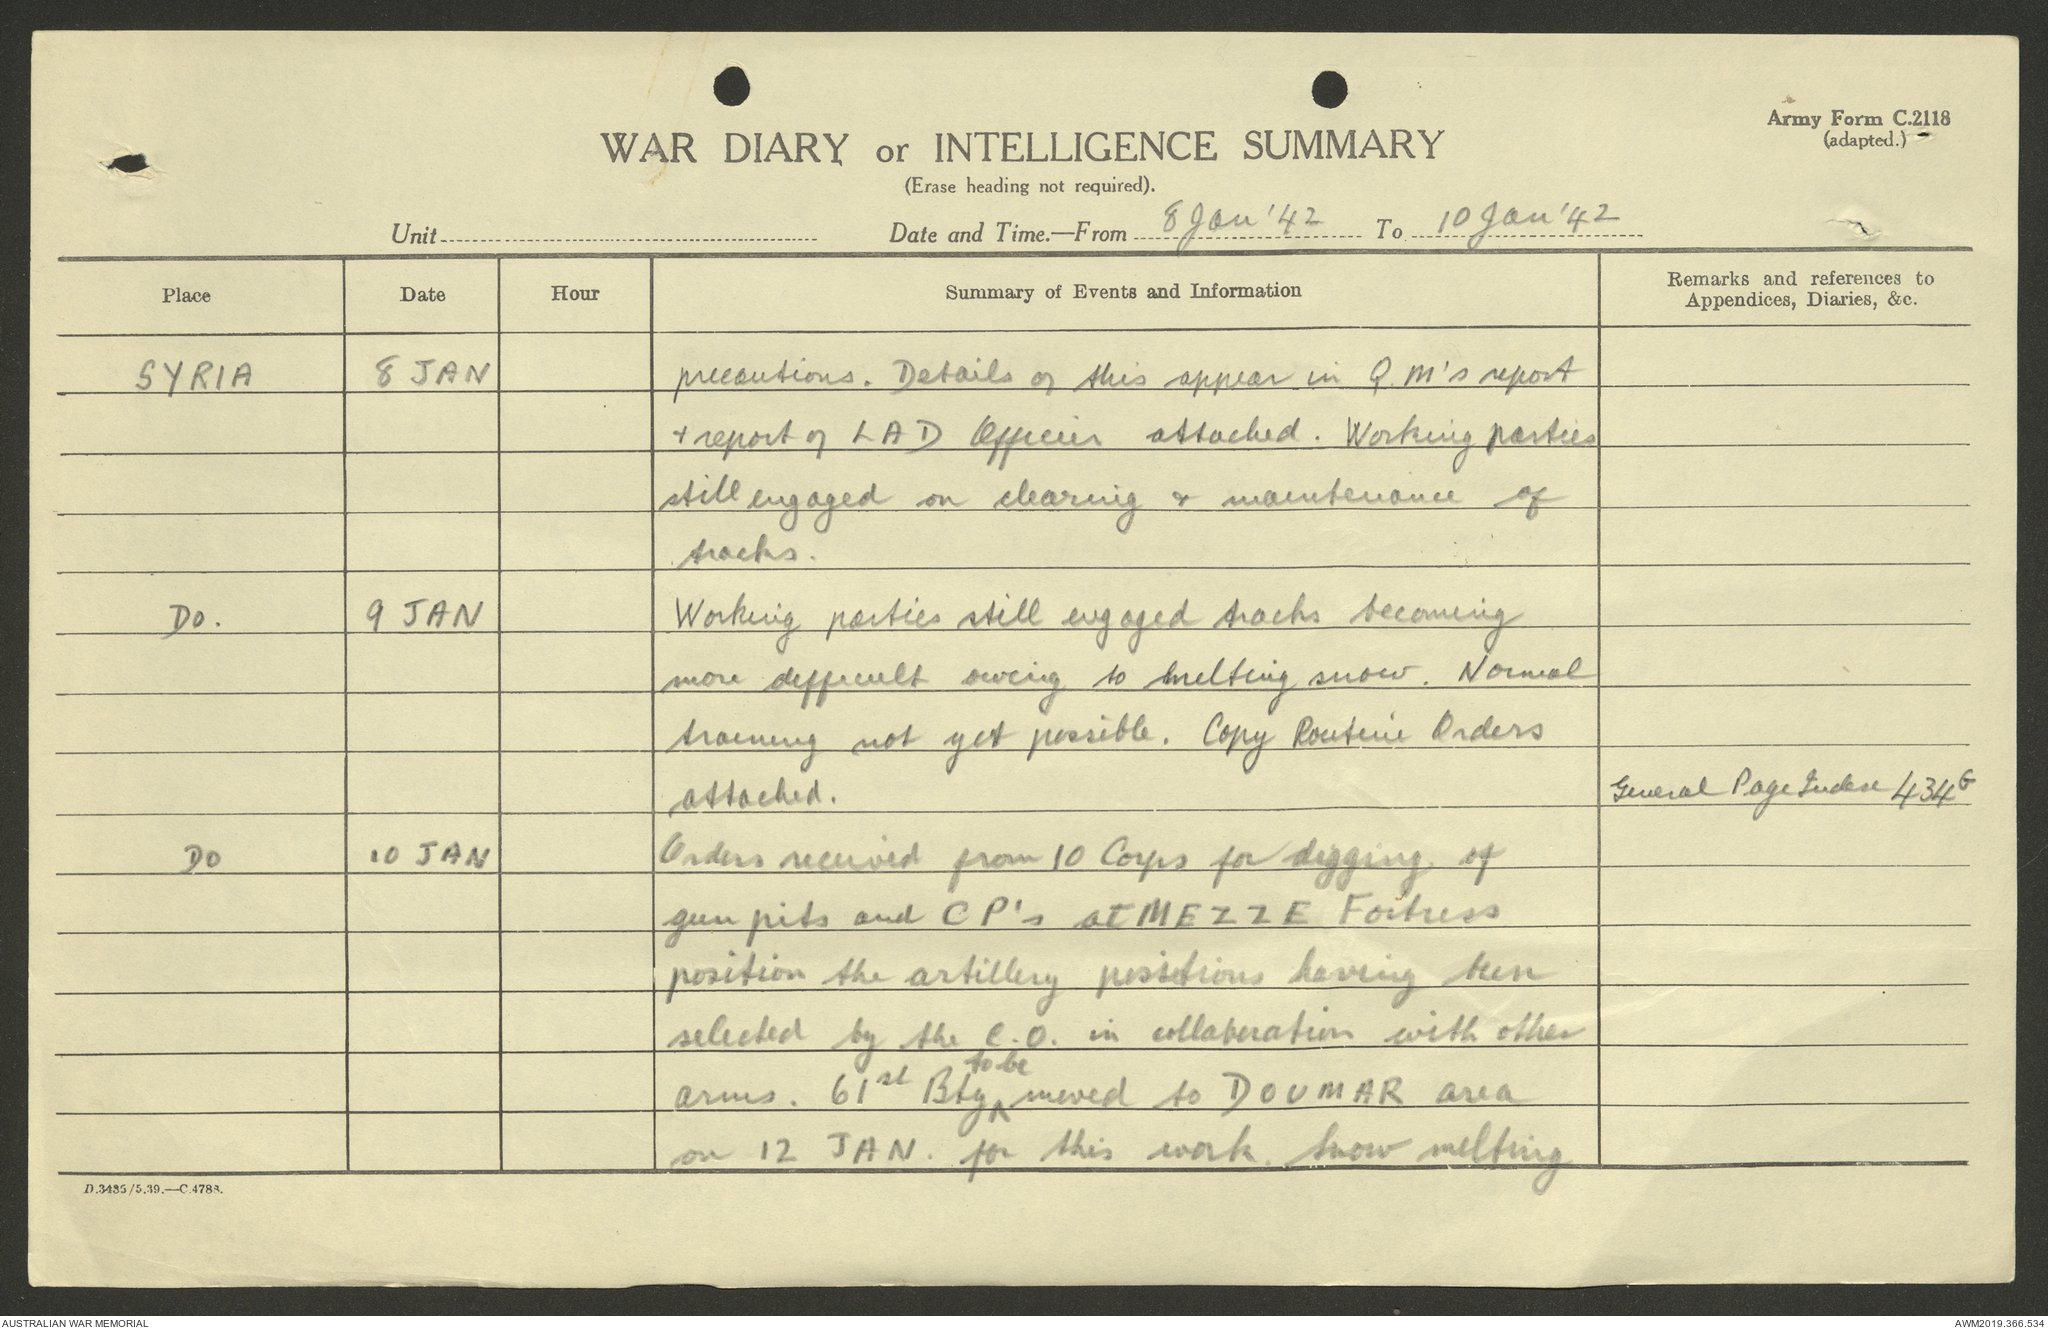 Army Form C.2118
(adapted.)
WAR DIARY or INTELLIGENCE SUMMARY
(Erase heading not required).
Unit Date and Time.—From 8 Jan '42 To 10 Jan '42
Place Date Hour Summary of Events and Information Remarks and references to
Appendices, Diaries, &c.
SYRIA 8 JAN precautions. Details of this appear in Q.M's report
+ report of LAD Officer attached. Working parties
still engaged on clearing & maintenance of
tracks.
Do. 9 JAN Working parties still engaged tracks becoming
more difficult owing to melting snow. Normal
training not yet possible. Copy Routine Orders
attached. General Page Index 434G
Do 10 JAN Orders received from 10 Corps for digging of
gun pits and CP's at MEZZE Fortress
position the artillery positions having been
selected by the C.O. in collaboration with other
arms. 61st Bty to be moved to DOUMAR area
on 12 JAN. for this work. Snow melting
D.3435/5.39.—C.4788.
AUSTRALIAN WAR MEMORIAL AWM2019.366.534